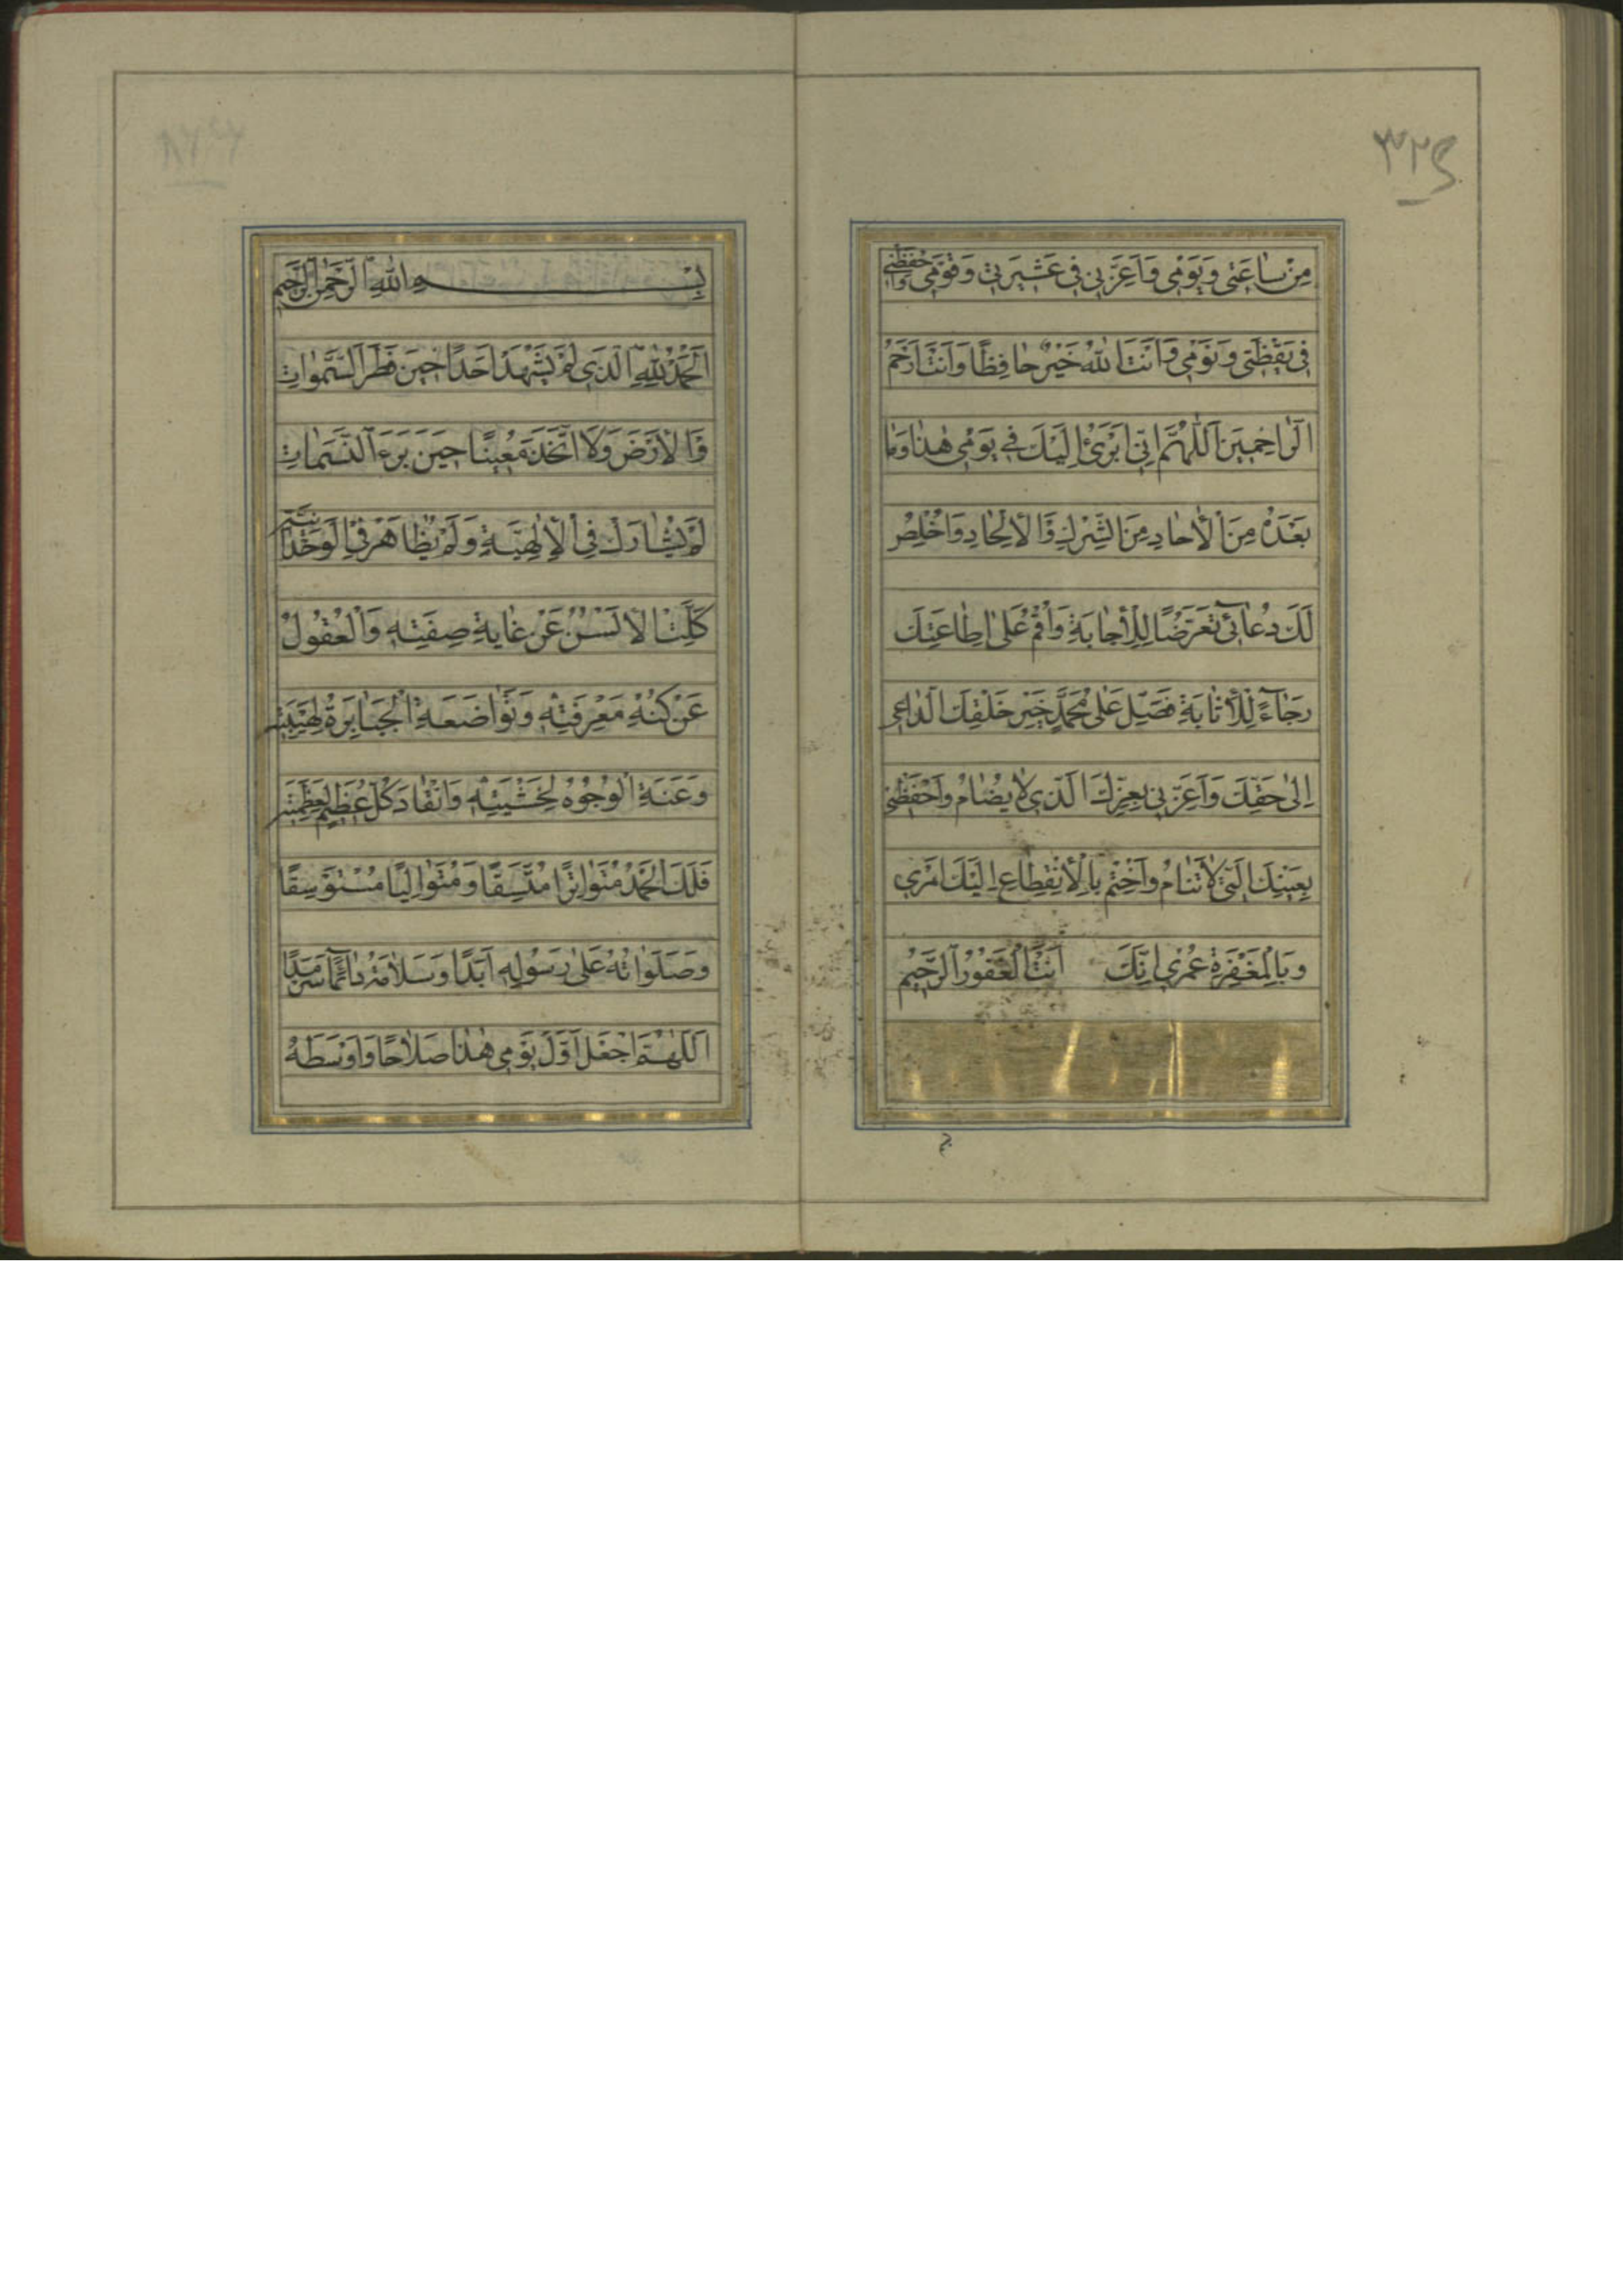 ٣٢٤
مِنْ سٰاعَتى وَيَوْمى وَاَعِزَّنى فى عَشيرَتى وَقَوْمى وَاحْفَظْنى
فى يَقْظَتى وَنَوْمى وَاَنْتَ اللهُ خَيْرٌ حٰافِظًا وَاَنْتَ اَرْحَمُ
الرّٰاحِمينَ اَللّٰهُمَّ اِنّى اَبْرَئُ اِلَيْكَ فى يَوْمى هٰذٰا وَمٰا
بَعْدَهُ مِنَ الْأٰحٰادِ مِنَ الشِّرْكِ وَالْاِلْحٰادِ وَاُخْلِصُ
لَكَ دُعٰائى تَعَرُّضًا لِلْاِجٰابَةِ وَاُقمُ عَلىٰ اِطٰاعَتِكَ
رَجٰاءً لِلْاِثٰابَةِ فَصَلِّ عَلىٰ مُحَمَّدٍ خَيْرِ خَلْقِكَ الدّٰاعى
اِلىٰ حَقِّكَ وَاَعِزَّنى بِعِزِّكَ الَّذى لاٰ يُضٰامُ وَاحْفَظْنى
بِعَيْنِكَ الَّتى لاٰ تَنٰامُ وَاخْتِمْ بِالْاِنْقِطٰاعِ اِلَيْكَ اَمْرى
وَبِالْمَغْفِرَةِ عُمْرى اِنَّكَ اَنْتَ الْغَفُورُ الرَّحيمُ
بِسْمِ اللهِ الرَّحْمٰنِ الرَّحيمِ
اَلْحَمْدُ لِلّٰهِ الَّذى لَمْ يَشْهَدْ اَحَدًا حينَ فَطَرَ السَّمٰوٰاتِ
وَالْاَرْضَ وَلاَ اتَّخَذَ مُعينًا حينَ بَرَءَ النَّسَمٰاتِ
لَمْ يُشٰارَكْ فِى الْاِلٰهِيَّةِ وَلَمْ يُظٰاهَرْ فِى الْوَحْدٰانِيَّةِ
كَلَّتِ الْاَلْسُنُ عَنْ غٰايَةِ صِفَتِهِ وَالْعُقُولُ
عَنْ كُنْهِ مَعْرِفَتِهِ وَتَوٰاضَعَةِ الْجَبٰابِرَةُ لِهَيْبَتِهِ
وَعَنَةِ الْوُجُوهُ لِخَشْيَتِهِ وَانْقٰادَ كُلُّ عَظيمٍ لِعَظَمَتِهِ
فَلَكَ الْحَمْدُ مُتَوٰاتِرًا مُتَّسِقًا وَمُتَوٰالِيًا مُسْتَوْسِقًا
وَصَلَوٰاتُهُ عَلىٰ رَسُولِهِ اَبَدًا وَسَلاٰمُهُ دٰائِمًا سَرْمَدًا
اَللّٰهُمَّ اجْعَلْ اَوَّلَ يَوْمى هٰذٰا صَلاٰحًا وَاَوْسَطَهُ